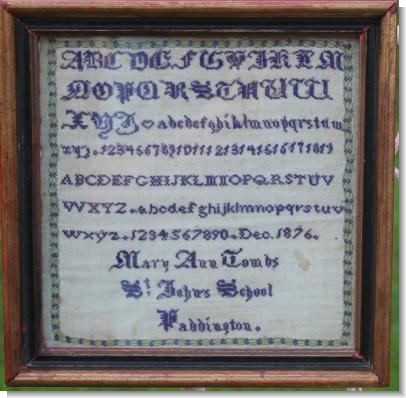 ABCDEFGHIJKLM
NOPQRSTUVW
XYZ abcdefghiklmnopqrstuw
xyz. 12345678910111213141516171819
ABCDEFGHIJKLMNOPQRSTUV
WXYZ. abcdefghijklmnopqrstuv
wxyz. 1234567890. Dec. 1876.
Mary Ann Tombs
St. John's School
Paddington.